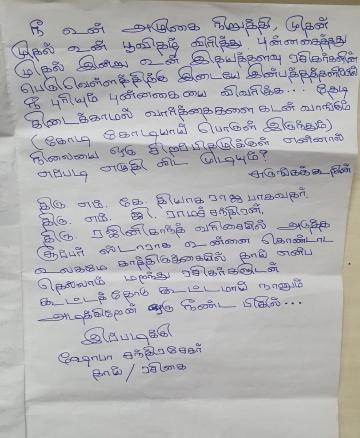 நீ உன் அழுகை நிறுத்தி, முதன்
முதல் உன் பூவிதழ் விரித்து, புன்னகைத்தது
முதல் இன்று உன் இதயத்தளவு ரசிகர்களின்
பெருவெள்ளத்திற்கு இடையே இன்பத்தத்தளிப்பில்
நீ புரியும் புன்னகையை விவரிக்க... தேடி
கிடைக்காமல் வார்த்தைகளை கடன் வாங்கும்
(கோடி கோடியாய் பொருள் இருந்தும்)
நிலையை ஒரு சிறு என்னால்
எப்படி எழுதி விட முடியும்?
திரு எம். கே. தியாகராஜ பாகவதர்,
திரு. எம். ஜி. ராமச்சந்திரன்,
திரு. ரஜினிகாந்த் வரிசையில் அடுத்த
சூப்பர் ஸ்டாராக உன்னை கொண்டாட
உலகமே காத்திருக்கையில் தாய் என்ப
தெல்லாம் மறந்து ரசிகர்களுடன்
கூட்டத்தோடு கூட்டமாய் நானும்
அடிக்கிறேன் ஒரு நீண்ட விசில்...
இப்படிக்கு
ஷோபா சந்திரசேகர்
தாய் / ரசிகை